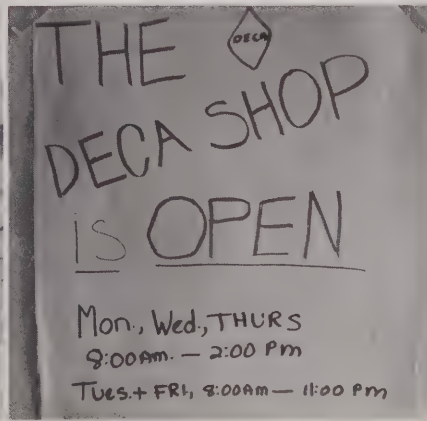 THE
DECA
DECA SHOP
is OPEN
Mon., Wed., THURS
8:00Am. — 2:00 Pm
Tues. + FRI, 8:00Am — 11:00 Pm